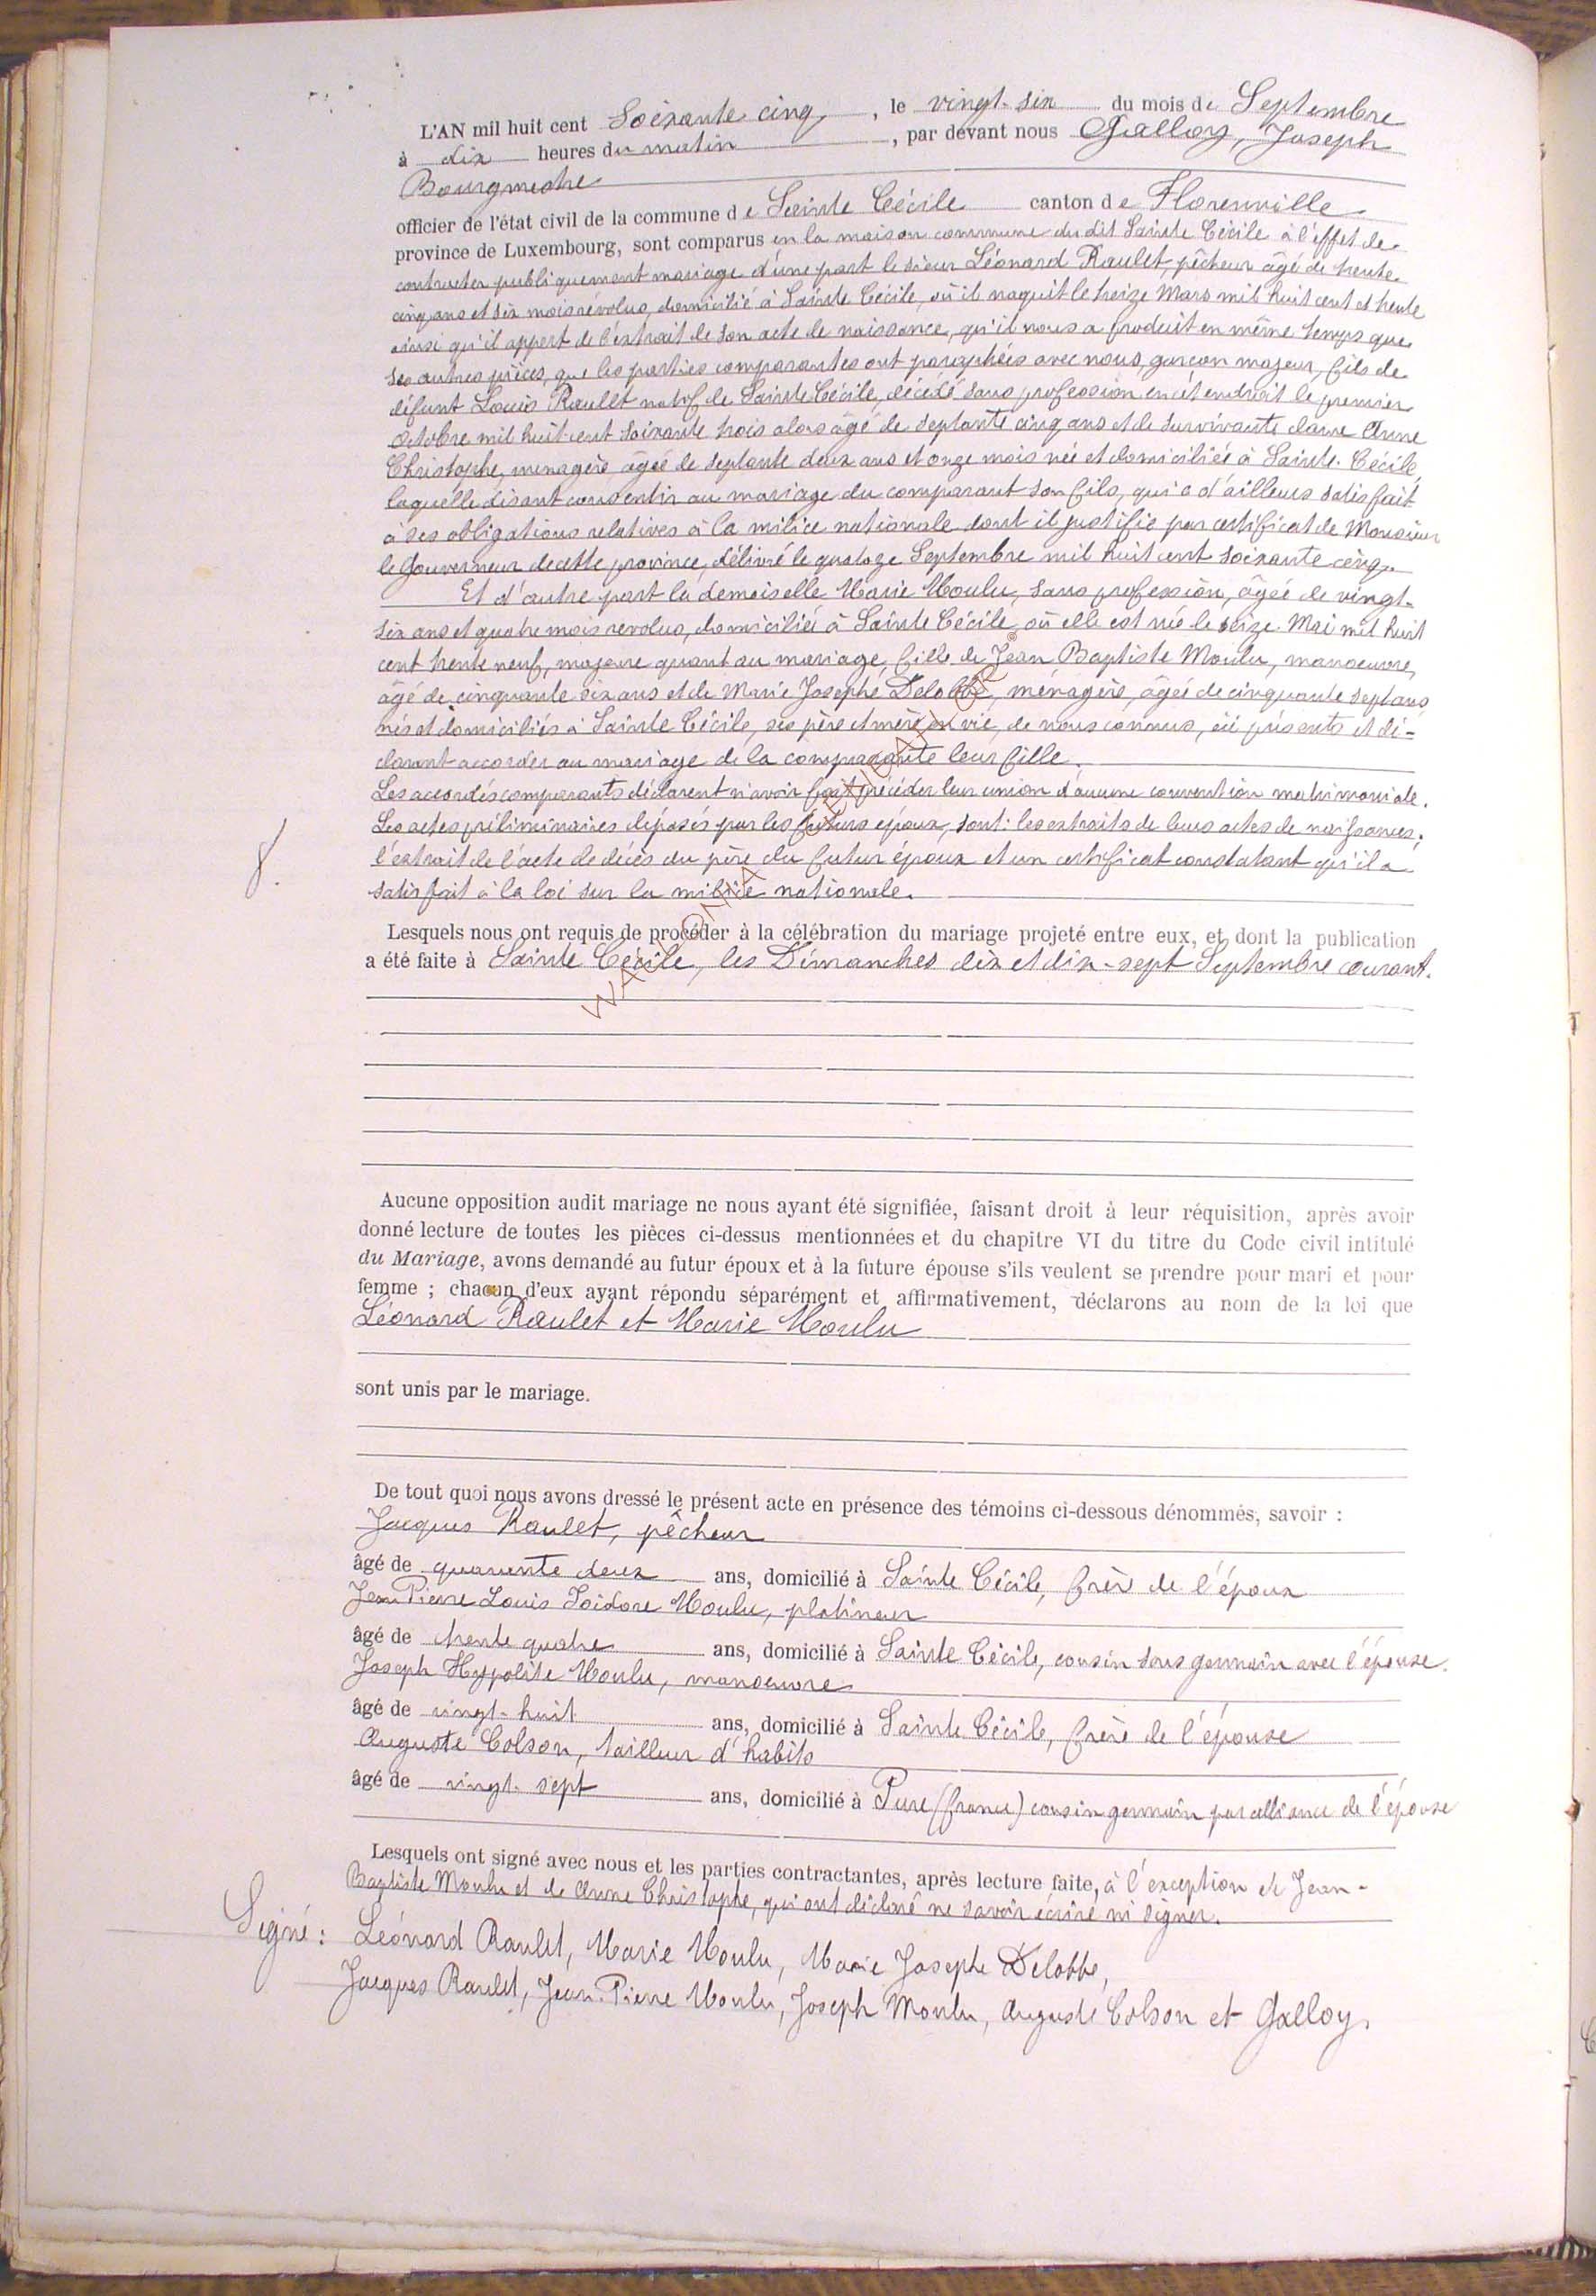 L'AN mil huit cent Soixante cinq, le vingt-six du mois de Septembre
à dix heures du matin, par devant nous Galloy, Joseph
Bourgmestre
officier de l'état civil de la commune de Sainte Cécile canton de Florenville
province de Luxembourg, sont comparus en la maison commune du dit Sainte Cécile à l'effet de
contracter publiquement mariage d'une part le sieur Léonard Raulet, pêcheur âgé de trente
cinq ans et six mois révolus, domicilié à Sainte Cécile, où il naquit le treize Mars mil huit cent et trente
ainsi qu'il appert de l'extrait de son acte de naissance, qu'il nous a produit en même temps que
ses autres pièces, que les parties comparantes ont paraphées avec nous, garçon majeur, fils de
défunt Louis Raulet natif de Sainte Cécile, décédé sans profession en cet endroit le premier
Octobre mil huit cent soixante trois alors âgé de septante cinq ans et de survivante dame Anne
Christophe, menagère âgée de septante deux ans et onze mois née et domiciliée à Sainte-Cécile,
laquelle disant consentir au mariage du comparant son fils, qui a d'ailleurs satisfait
à ses obligations relatives à la milice nationale dont il justifie par certificat de Monsieur
le Gouverneur de cette province, délivré le quatoze Septembre mil huit cent soixante cinq.
Et d'autre part la demoiselle Marie Moulu, sans profession, âgée de vingt-
six ans et quatre mois revolus, domiciliée à Sainte Cécile, où elle est née le seize Mai mil huit
cent trente neuf, majeure quant au mariage, fille de Jean Baptiste Moulu, manoeuvre,
âgé de cinquante six ans et de Marie Josephe Delobbe, ménagère, âgée de cinquante sept ans
nés et domiciliés à Sainte Cécile, ses père et mère en vie, de nous connus, ici présents et dé-
clarant accorder au mariage de la comparante leur fille.
Les accordés comparants déclarent n'avoir fait précéder leur union d'aucune convention matrimoniale.
Les actes préliminaires déposés par les futurs époux, sont: les extraits de leurs actes de naissances;
l'extrait de l'acte de décès du père du futur époux et un certificat constatant qu'il a
8.
satisfait à la loi sur la milice nationale.
Lesquels nous ont requis de procéder à la célébration du mariage projeté entre eux, et dont la publication
a été faite à Sainte Cécile, les Dimanches dix et dix-sept Septembre courant.
Aucune opposition audit mariage ne nous ayant été signifiée, faisant droit à leur réquisition, après avoir
donné lecture de toutes les pièces ci-dessus mentionnées et du chapitre VI du titre du Code civil intitulé
du Mariage, avons demandé au futur époux et à la future épouse s'ils veulent se prendre pour mari et pour
femme ; chacun d'eux ayant répondu séparément et affirmativement, déclarons au nom de la loi que
Léonard Raulet et Marie Moulu
sont unis par le mariage.
De tout quoi nous avons dressé le présent acte en présence des témoins ci-dessous dénommés, savoir :
Jacques Raulet, pêcheur
âgé de quarante deux ans, domicilié à Sainte Cécile, frère de l'époux
Jean Pierre Louis Isidore Moulu, platineur
âgé de trente quatre ans, domicilié à Sainte Cécile, cousin sous germain avec l'épouse.
Joseph Hypolite Moulu, manoeuvre
âgé de vingt-huit ans, domicilié à Sainte Cécile, frère de l'épouse
Auguste Colson, tailleur d'habits
âgé de vingt-sept ans, domicilié à Pure (france) cousin germain par alliance de l'épouse
Lesquels ont signé avec nous et les parties contractantes, après lecture faite, à l'exception de Jean-
Baptiste Moulu et de Anne Christophe, qui ont déclaré ne savoir écrire ni signer.
Signé: Léonard Raulet, Marie Moulu, Marie Josephe Delobbe,
Jacques Raulet, Jean-Pierre Moulu, Joseph Moulu, Auguste Colson et Galloy.